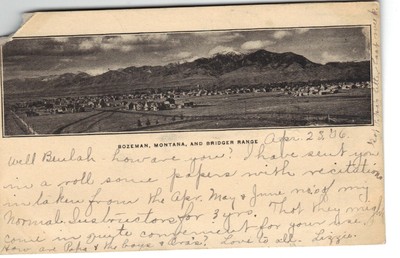 BOZEMAN, MONTANA, AND BRIDGER RANGE
Apr. 23, '06.
Well Beulah - how are you? I have sent you
in a roll some papers with recitations
in taken from the Apr. May & June nos of my
Normal Instructors for 3 yrs. Thot they might
come in quite convenient for your use.
How are Papa & the boys & Ora's? Love to all. Lizzie.